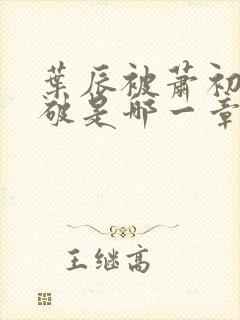 葉辰被蕭初
破是哪一章
王继高